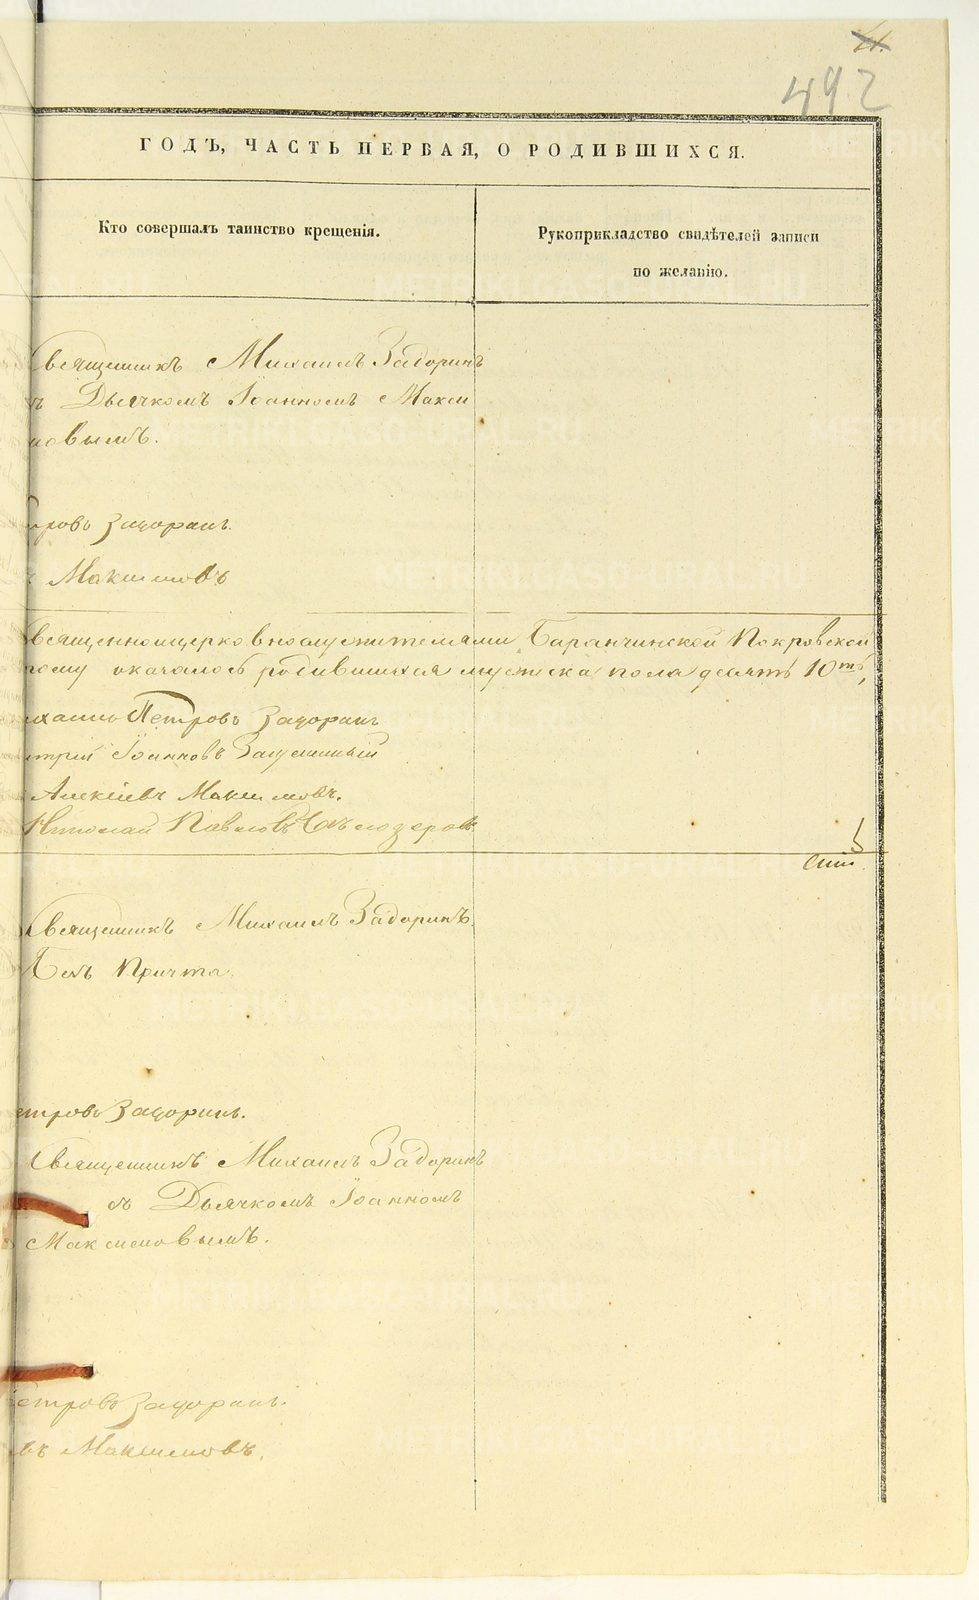 492
ГОДЪ, ЧАСТЬ ПЕРВАЯ, О РОДИВШИХСЯ.
Кто совершалъ таинство крещенія.
Рукоприкладство свидѣтелей записи
по желанію.
Священникъ Михаилъ Задоринъ
съ Дьячкомъ Іоанномъ Макси
мовымъ.
тровъ Задоринъ.
Максимовъ
священноцерковнослужителями Баранчинской Покровской
оказалось родившихся мужеска пола десять 10ть,
Петровъ Задоринъ
Іоанновъ
Алексѣевъ Максимовъ.
Николай Павловъ Бѣлозеровъ
Священникъ Михаилъ Задоринъ
Безъ Причта.
етровъ Задоринъ.
Священникъ Михаилъ Задоринъ
съ Дьячкомъ Іоанномъ
Максимовымъ.
Петровъ Задоринъ.
въ Максимовъ.
METRIKI.GASO-URAL.RU